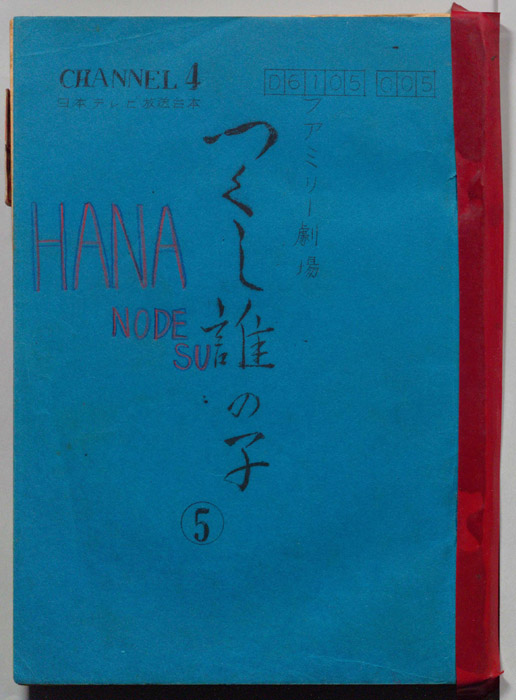 CHANNEL 4
日本テレビ放送台本
D6105 005
ファミリー劇場
つくし誰の子
⑤
HANA
NODE
SU